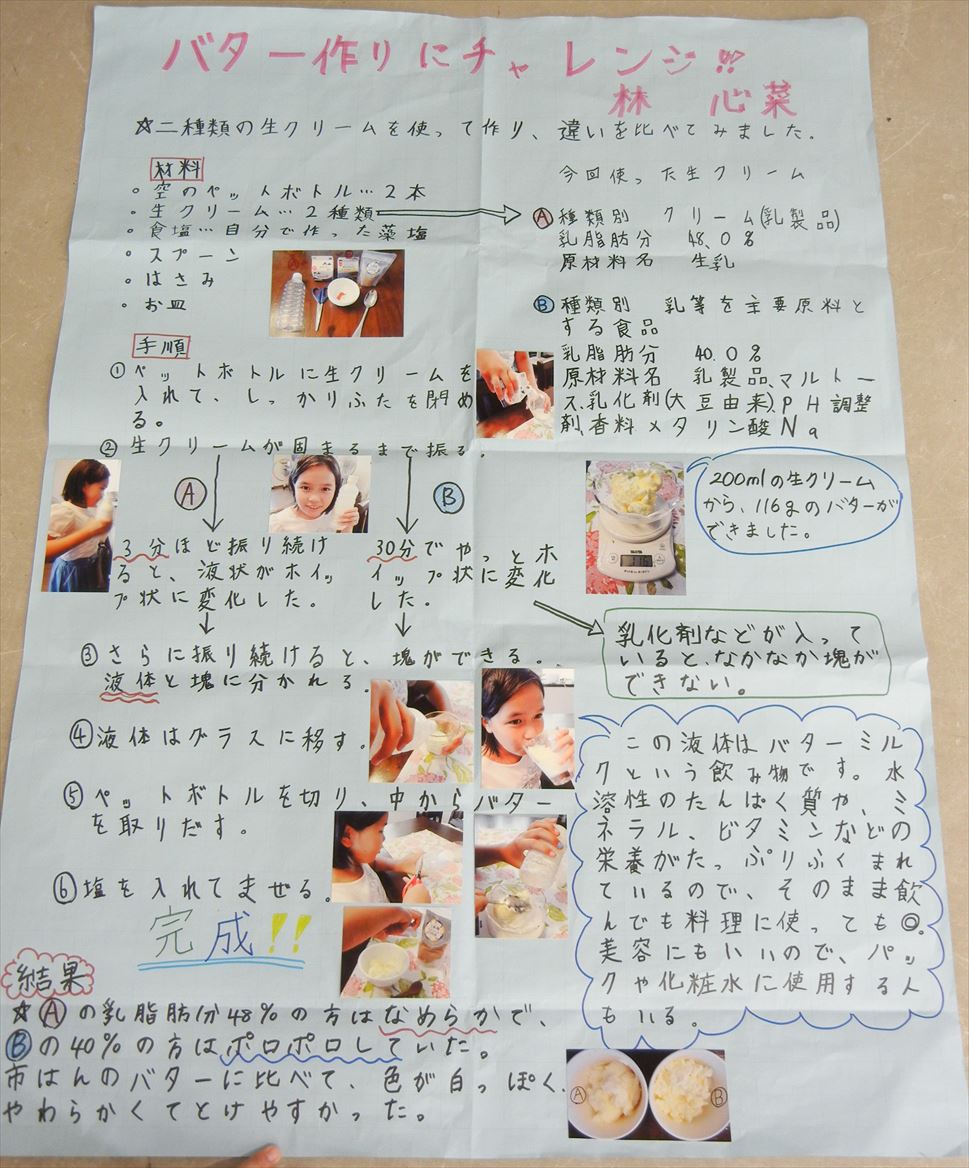 バター作りにチャレンジ!!
林 心菜
☆二種類の生クリームを使って作り、違いを比べてみました。
材料
・空のペットボトル…2本
・生クリーム…2種類
・食塩…自分で作った藻塩
・スプーン
・はさみ
・お皿
今回使った生クリーム
Ⓐ種類別 クリーム(乳製品)
乳脂肪分 48.0%
原材料名 生乳
Ⓑ種類別 乳等を主要原料と
する食品
乳脂肪分 40.0%
原材料名 乳製品、マルトー
ス、乳化剤(大豆由来)、PH調整
剤、香料メタリン酸Na
手順
①ペットボトルに生クリームを
入れて、しっかりふたを閉め
る。
②生クリームが固まるまで振る。
Ⓐ
3分ほど振り続け
ると、液状がホイッ
プ状に変化した。
Ⓑ
30分でやっとホ
イップ状に変化
した。
200mlの生クリーム
から、116gのバターが
できました。
乳化剤などが入って
いると、なかなか塊が
できない。
③さらに振り続けると、塊ができる。
液体と塊に分かれる。
④液体はグラスに移す。
⑤ペットボトルを切り、中からバター
を取りだす。
⑥塩を入れてまぜる。
完成!!
この液体はバターミル
クという飲み物です。水
溶性のたんぱく質や、ミ
ネラル、ビタミンなどの
栄養がたっぷりふくまれ
ているので、そのまま飲
んでも料理に使っても◎。
美容にもいいので、パッ
クや化粧水に使用する人
もいる。
結果
☆Ⓐの乳脂肪分48%の方はなめらかで、
Ⓑの40%の方はポロポロしていた。
市はんのバターに比べて、色が白っぽく、
やわらかくてとけやすかった。
Ⓐ
Ⓑ